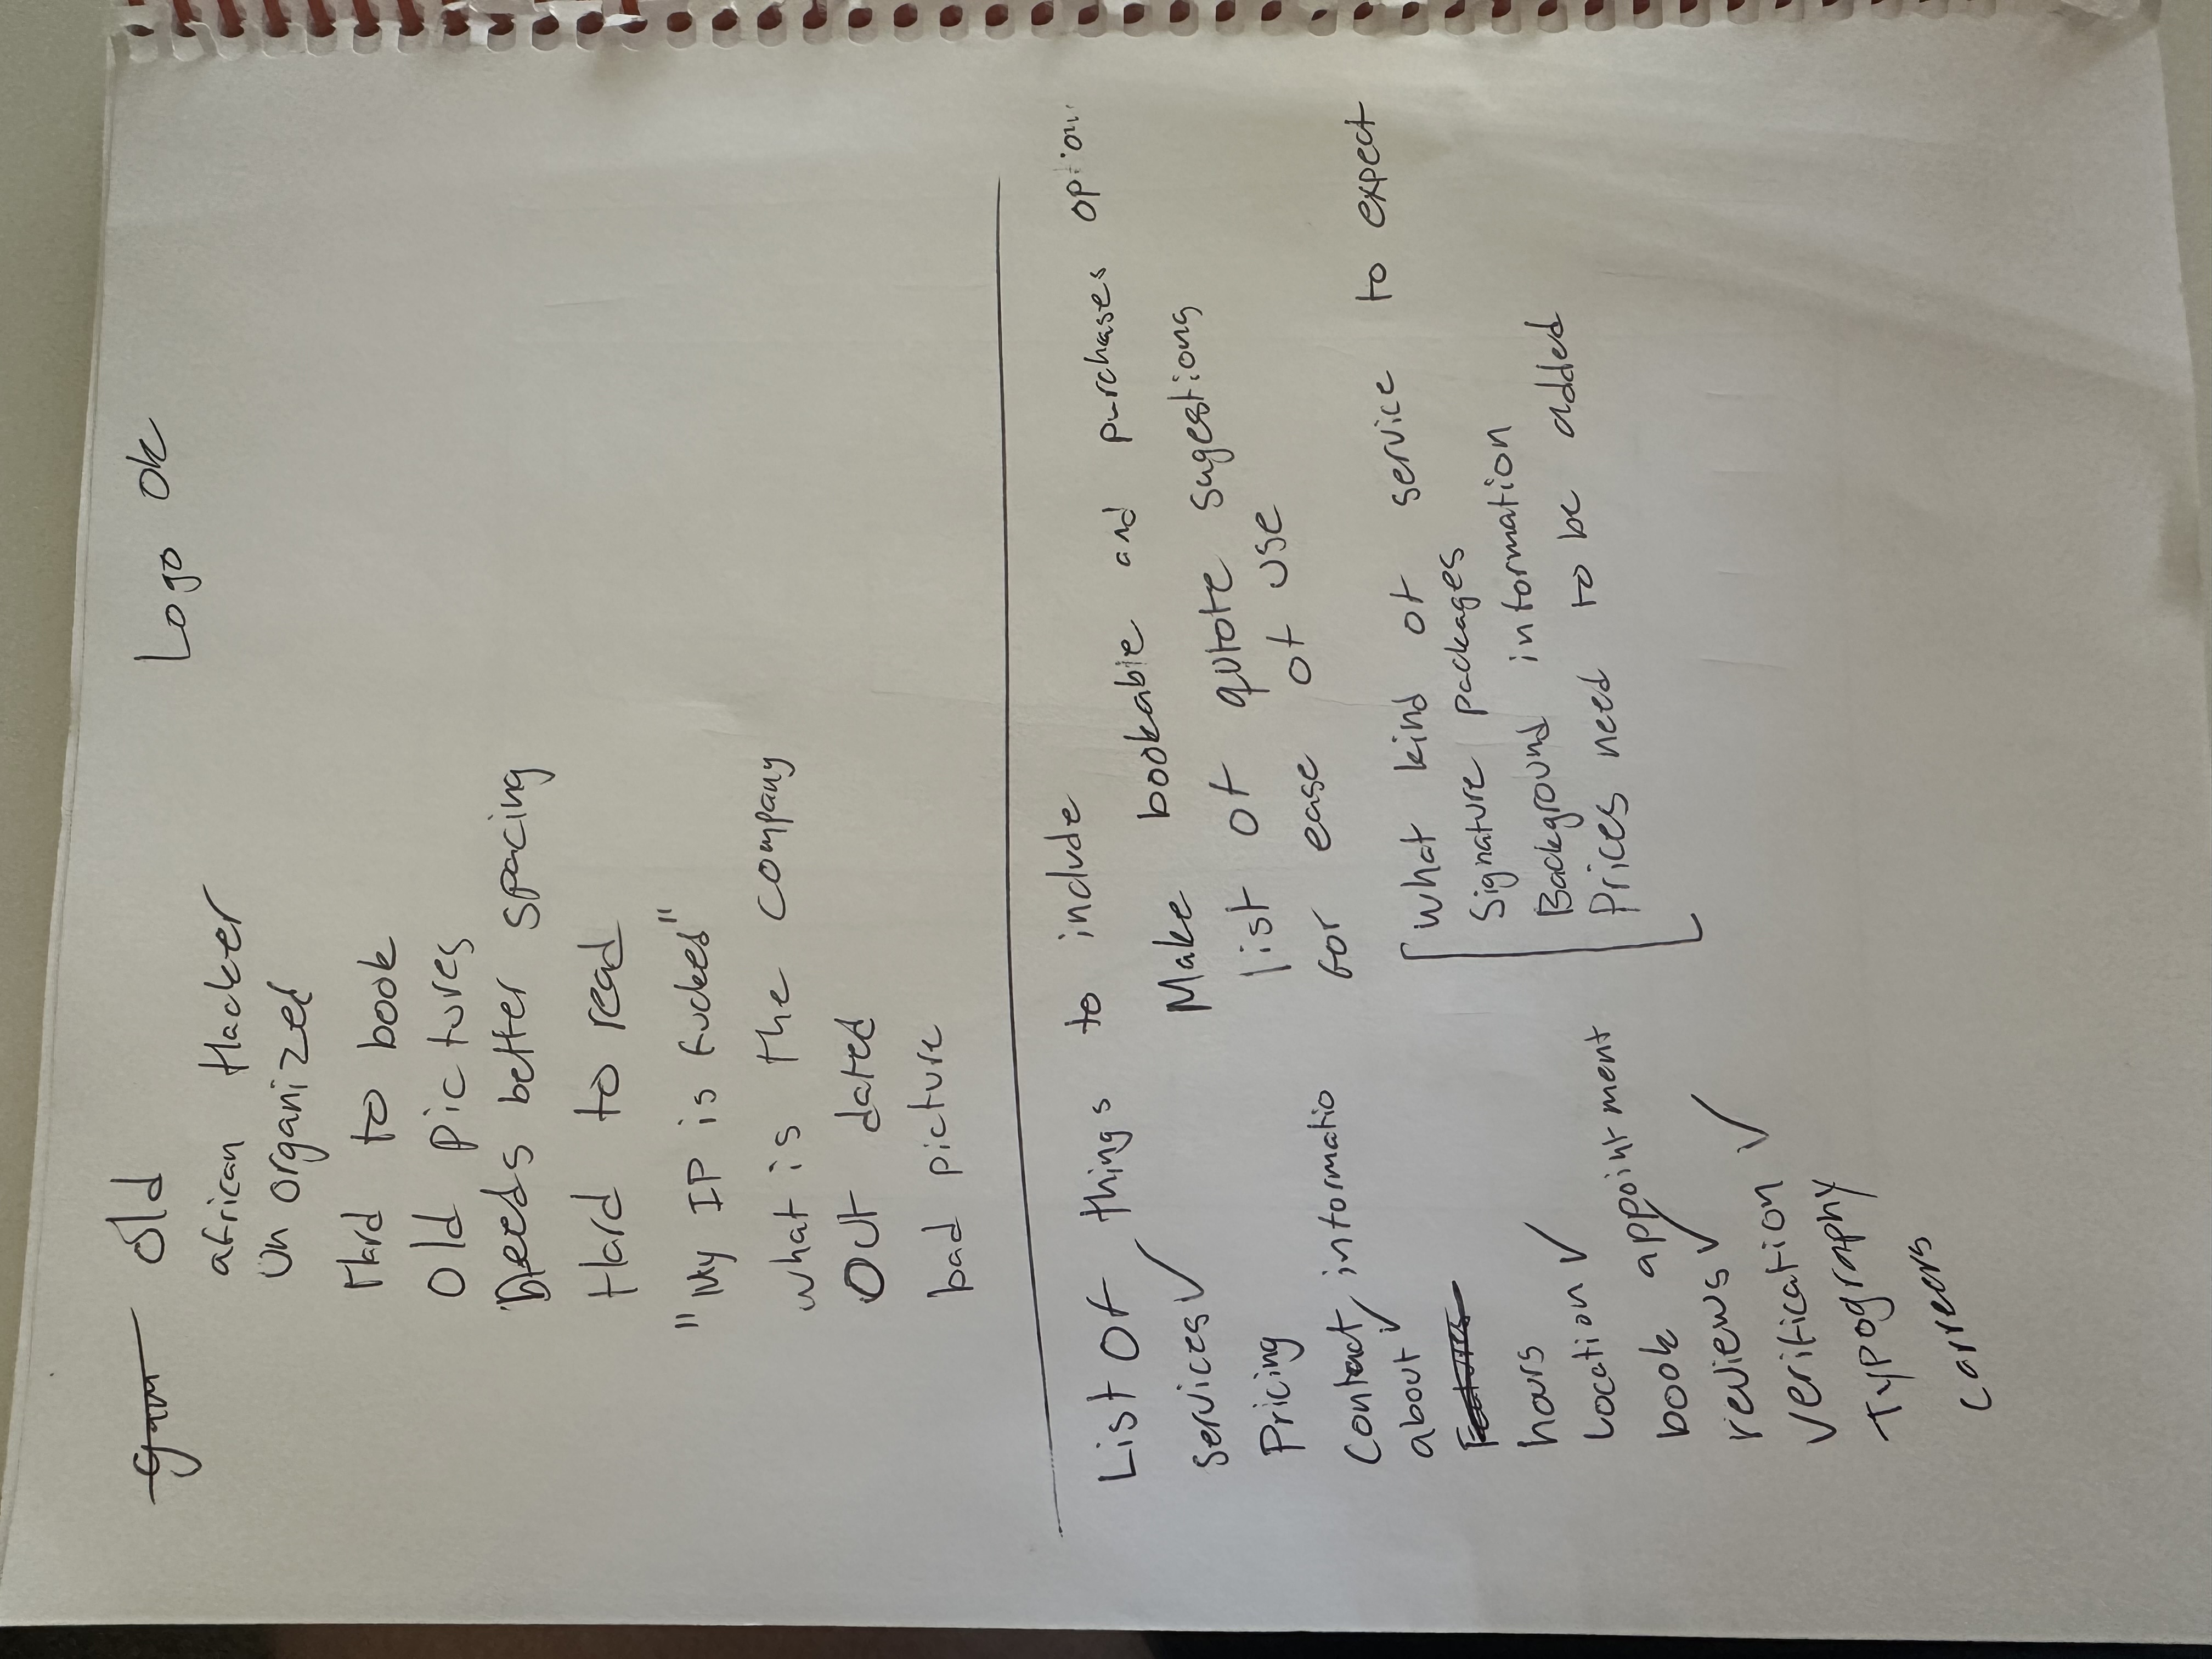 Old
Logo Ok
african Hacker
Un organized
Hard to book
Old pictures
Needs better spacing
Hard to read
"My IP is fucked"
what is the company
Out dated
bad picture
List Of things to include
Services ✓
Pricing
Contact informatio
about ✓
Features
hours
Location ✓
book appointment
reviews ✓
verification ✓
Typography
Carreers
Make bookable and purchases option
list of qutote sugestions
for ease of use
What kind of service to expect
Signature packages
Background information
Prices need to be added